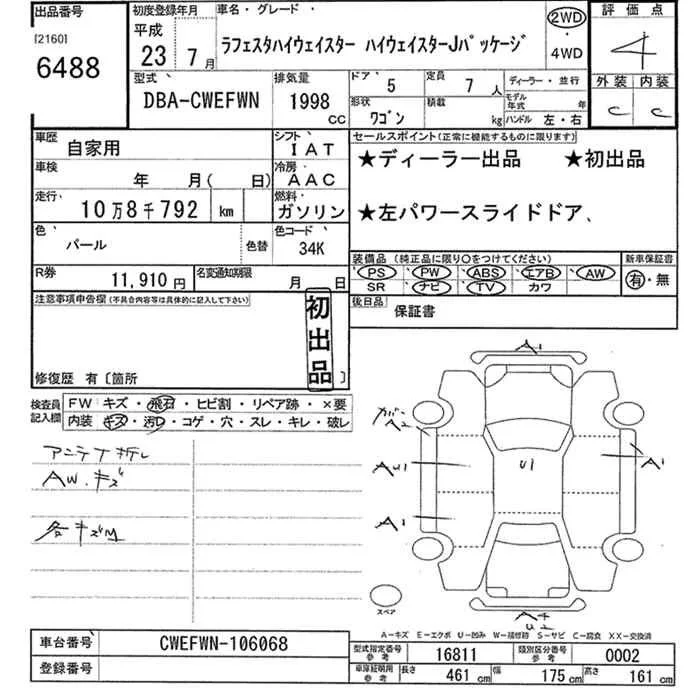 出品番号
[2160]
6488
初度登録年月
平成
23年 7月
車名・グレード
ラフェスタハイウェイスター ハイウェイスターJパッケージ
2WD
・
4WD
評価点
4
外装 内装
C C
型式
DBA-CWEFWN
排気量
1998
CC
ドア 5
定員 7人
形状 ワゴン
積載 kg
ディーラー・並行
モデル年式 年
ハンドル 左・右
車歴 自家用
シフト IAT
車検 年 月( 日)
冷房 AAC
走行 10万8千792 km
燃料 ガソリン
色 パール 色替
色コード 34K
R券 11,910円
名変通知期限 月 日
セールスポイント(正常に機能するものに限ります)
★ディーラー出品 ★初出品
★左パワースライドドア、
装備品(純正品に限り○をつけてください)
PS PW ABS エアB AW
SR ナビ TV カワ
新車保証書
有・無
後日品 保証書
注意事項申告欄(不具合内容等は具体的に記入して下さい)
初出品
修復歴 有〔箇所 〕
検査員記入欄
FW キズ・飛石・ヒビ割・リペア跡・×要
内装 キズ・汚れ・コゲ・穴・スレ・キレ・破レ
アンテナ折レ
AW.キズ
各キズM
A1
A2
AU1
U1
A1
A1
U2
スペア
A-キズ E-エクボ U-凹み W-補修跡 S-サビ C-腐食 XX-交換済
車台番号 CWEFWN-106068
登録番号
型式指定番号 参考 16811
類別区分番号 参考 0002
車庫証明用 参考 長さ 461cm 幅 175cm 高さ 161cm